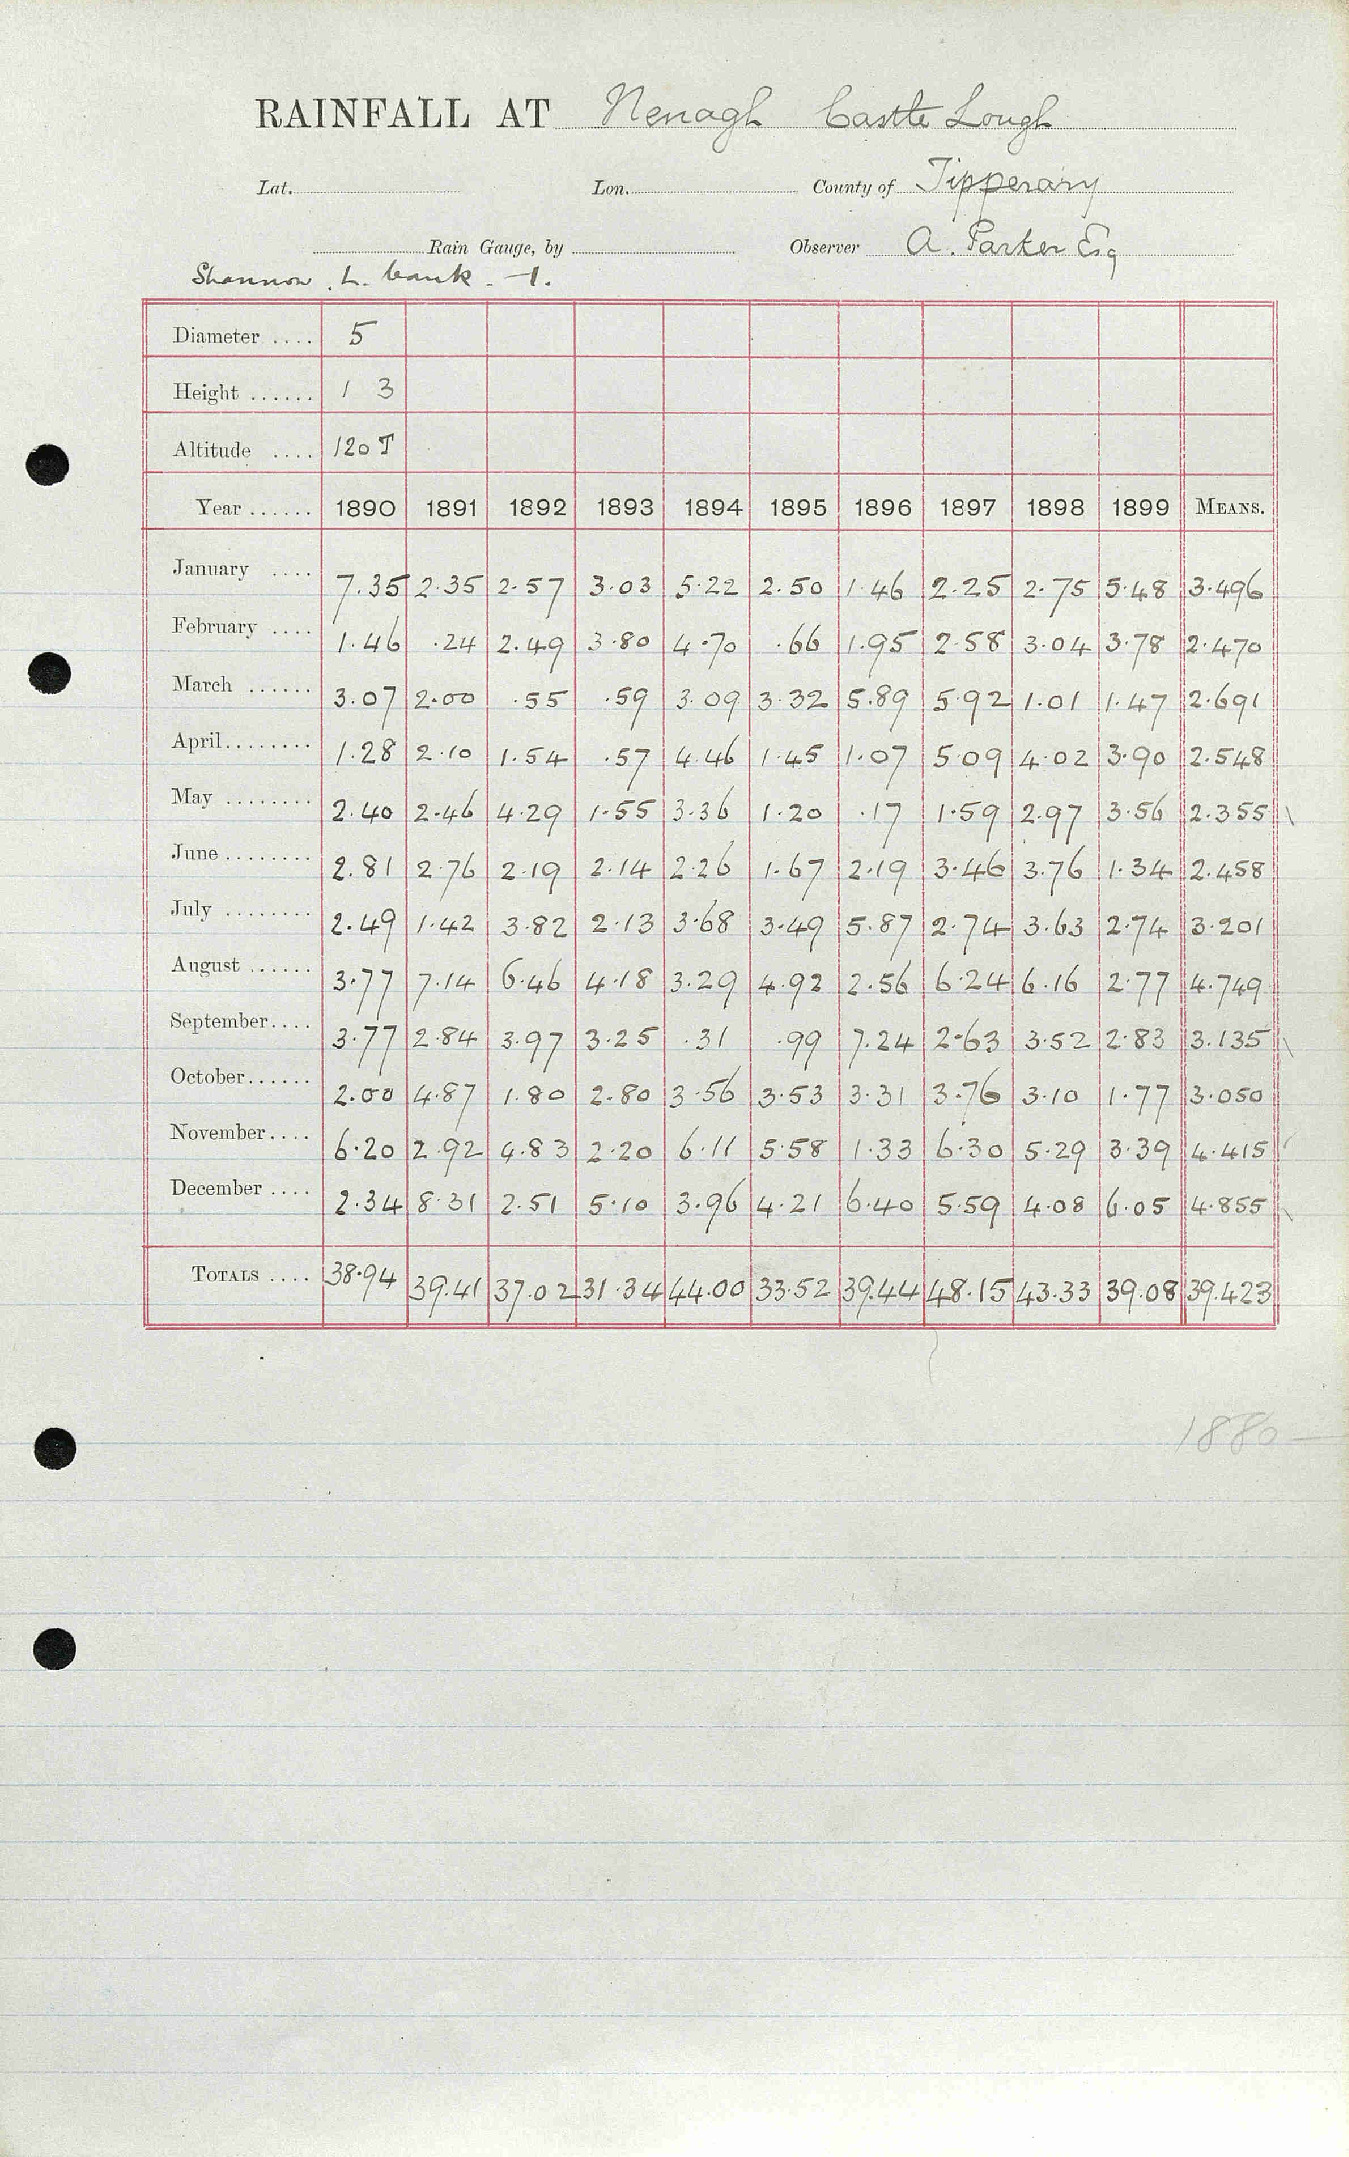 RAINFALL AT Nenagh Castle Lough
Lat. Lon. County of Tipperary
Rain Gauge, by Observer A. Parker Esq
Shannon . L. bank. -1.
Diameter .... 5
Height ...... 1 3
Altitude .... 120 T
Year ...... 1890 1891 1892 1893 1894 1895 1896 1897 1898 1899 MEANS.
January .... 7.35 2.35 2.57 3.03 5.22 2.50 1.46 2.25 2.75 5.48 3.496
February .... 1.46 .24 2.49 3.80 4.70 .66 1.95 2.58 3.04 3.78 2.470
March ...... 3.07 2.00 .55 .59 3.09 3.32 5.89 5.92 1.01 1.47 2.691
April........ 1.28 2.10 1.54 .57 4.46 1.45 1.07 5.09 4.02 3.90 2.548
May ........ 2.40 2.46 4.29 1.55 3.36 1.20 .17 1.59 2.97 3.56 2.355
June ........ 2.81 2.76 2.19 2.14 2.26 1.67 2.19 3.46 3.76 1.34 2.458
July ........ 2.49 1.42 3.82 2.13 3.68 3.49 5.87 2.74 3.63 2.74 3.201
August ...... 3.77 7.14 6.46 4.18 3.29 4.92 2.56 6.24 6.16 2.77 4.749
September.... 3.77 2.84 3.97 3.25 .31 .99 7.24 2.63 3.52 2.83 3.135
October...... 2.00 4.87 1.80 2.80 3.56 3.53 3.31 3.76 3.10 1.77 3.050
November.... 6.20 2.92 4.83 2.20 6.11 5.58 1.33 6.30 5.29 3.39 4.415
December .... 2.34 8.31 2.51 5.10 3.96 4.21 6.40 5.59 4.08 6.05 4.855
TOTALS .... 38.94 39.41 37.02 31.34 44.00 33.52 39.44 48.15 43.33 39.08 39.423
1880 —